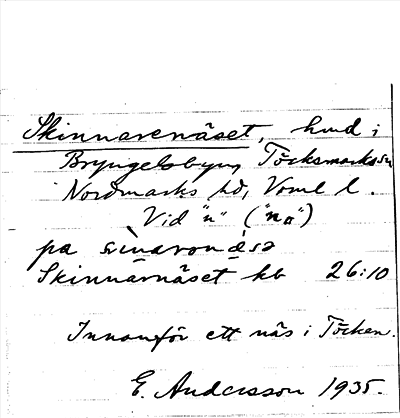 Skinnarenäset, hmd i
Bryngelsbyn, Töcksmarks sn
Nordmarks hd, Vrml l.
Vid "n" ("na")
pa
Skinnarnäset kb 26:10
Innanför ett näs i Töcken.
E. Andersson 1935.